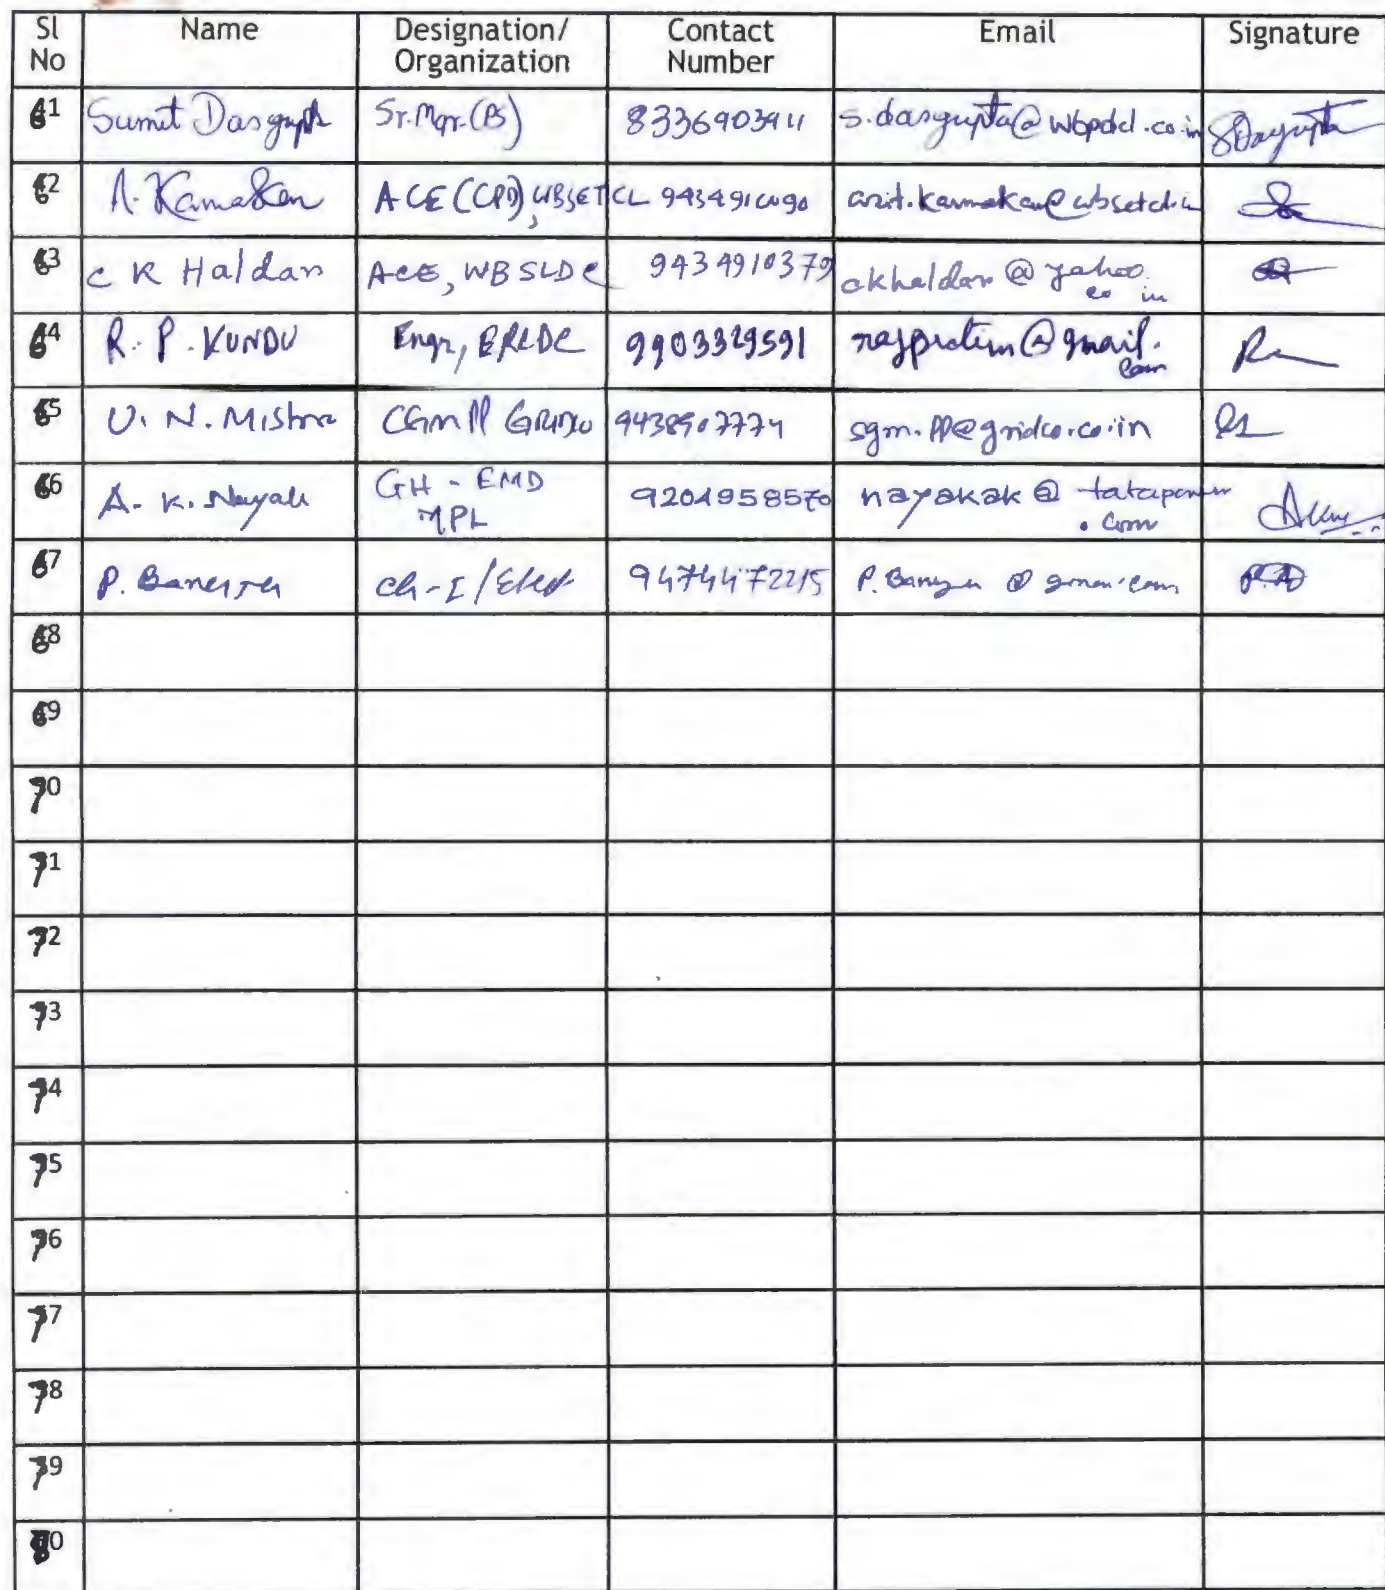 Sl No Name Designation/ Organization Contact Number Email Signature
61 Sumit Dasgupta Sr. Mgr. (PS) 8336903911 s.dasgupta@wbpdcl.co.in SDasgupta
62 A. Karmakar ACE (CPD), WBSETCL
63 C K Haldar ACE, WBSLDC 9434910379 ckhaldar@yahoo.co.in
64 R. P. KUNDU Engr, ERLDC 9903329591 rajprotim@gmail.com
65 U. N. Mishra CGM PP GRIDCO 9438907774 sgm.pp@gridco.co.in
66 A. K. Nayak GH - EMD MPL 9204958570 nayakak@tatapower.com
67 P. Banerjee 9474472215
68
69
70
71
72
73
74
75
76
77
78
79
80